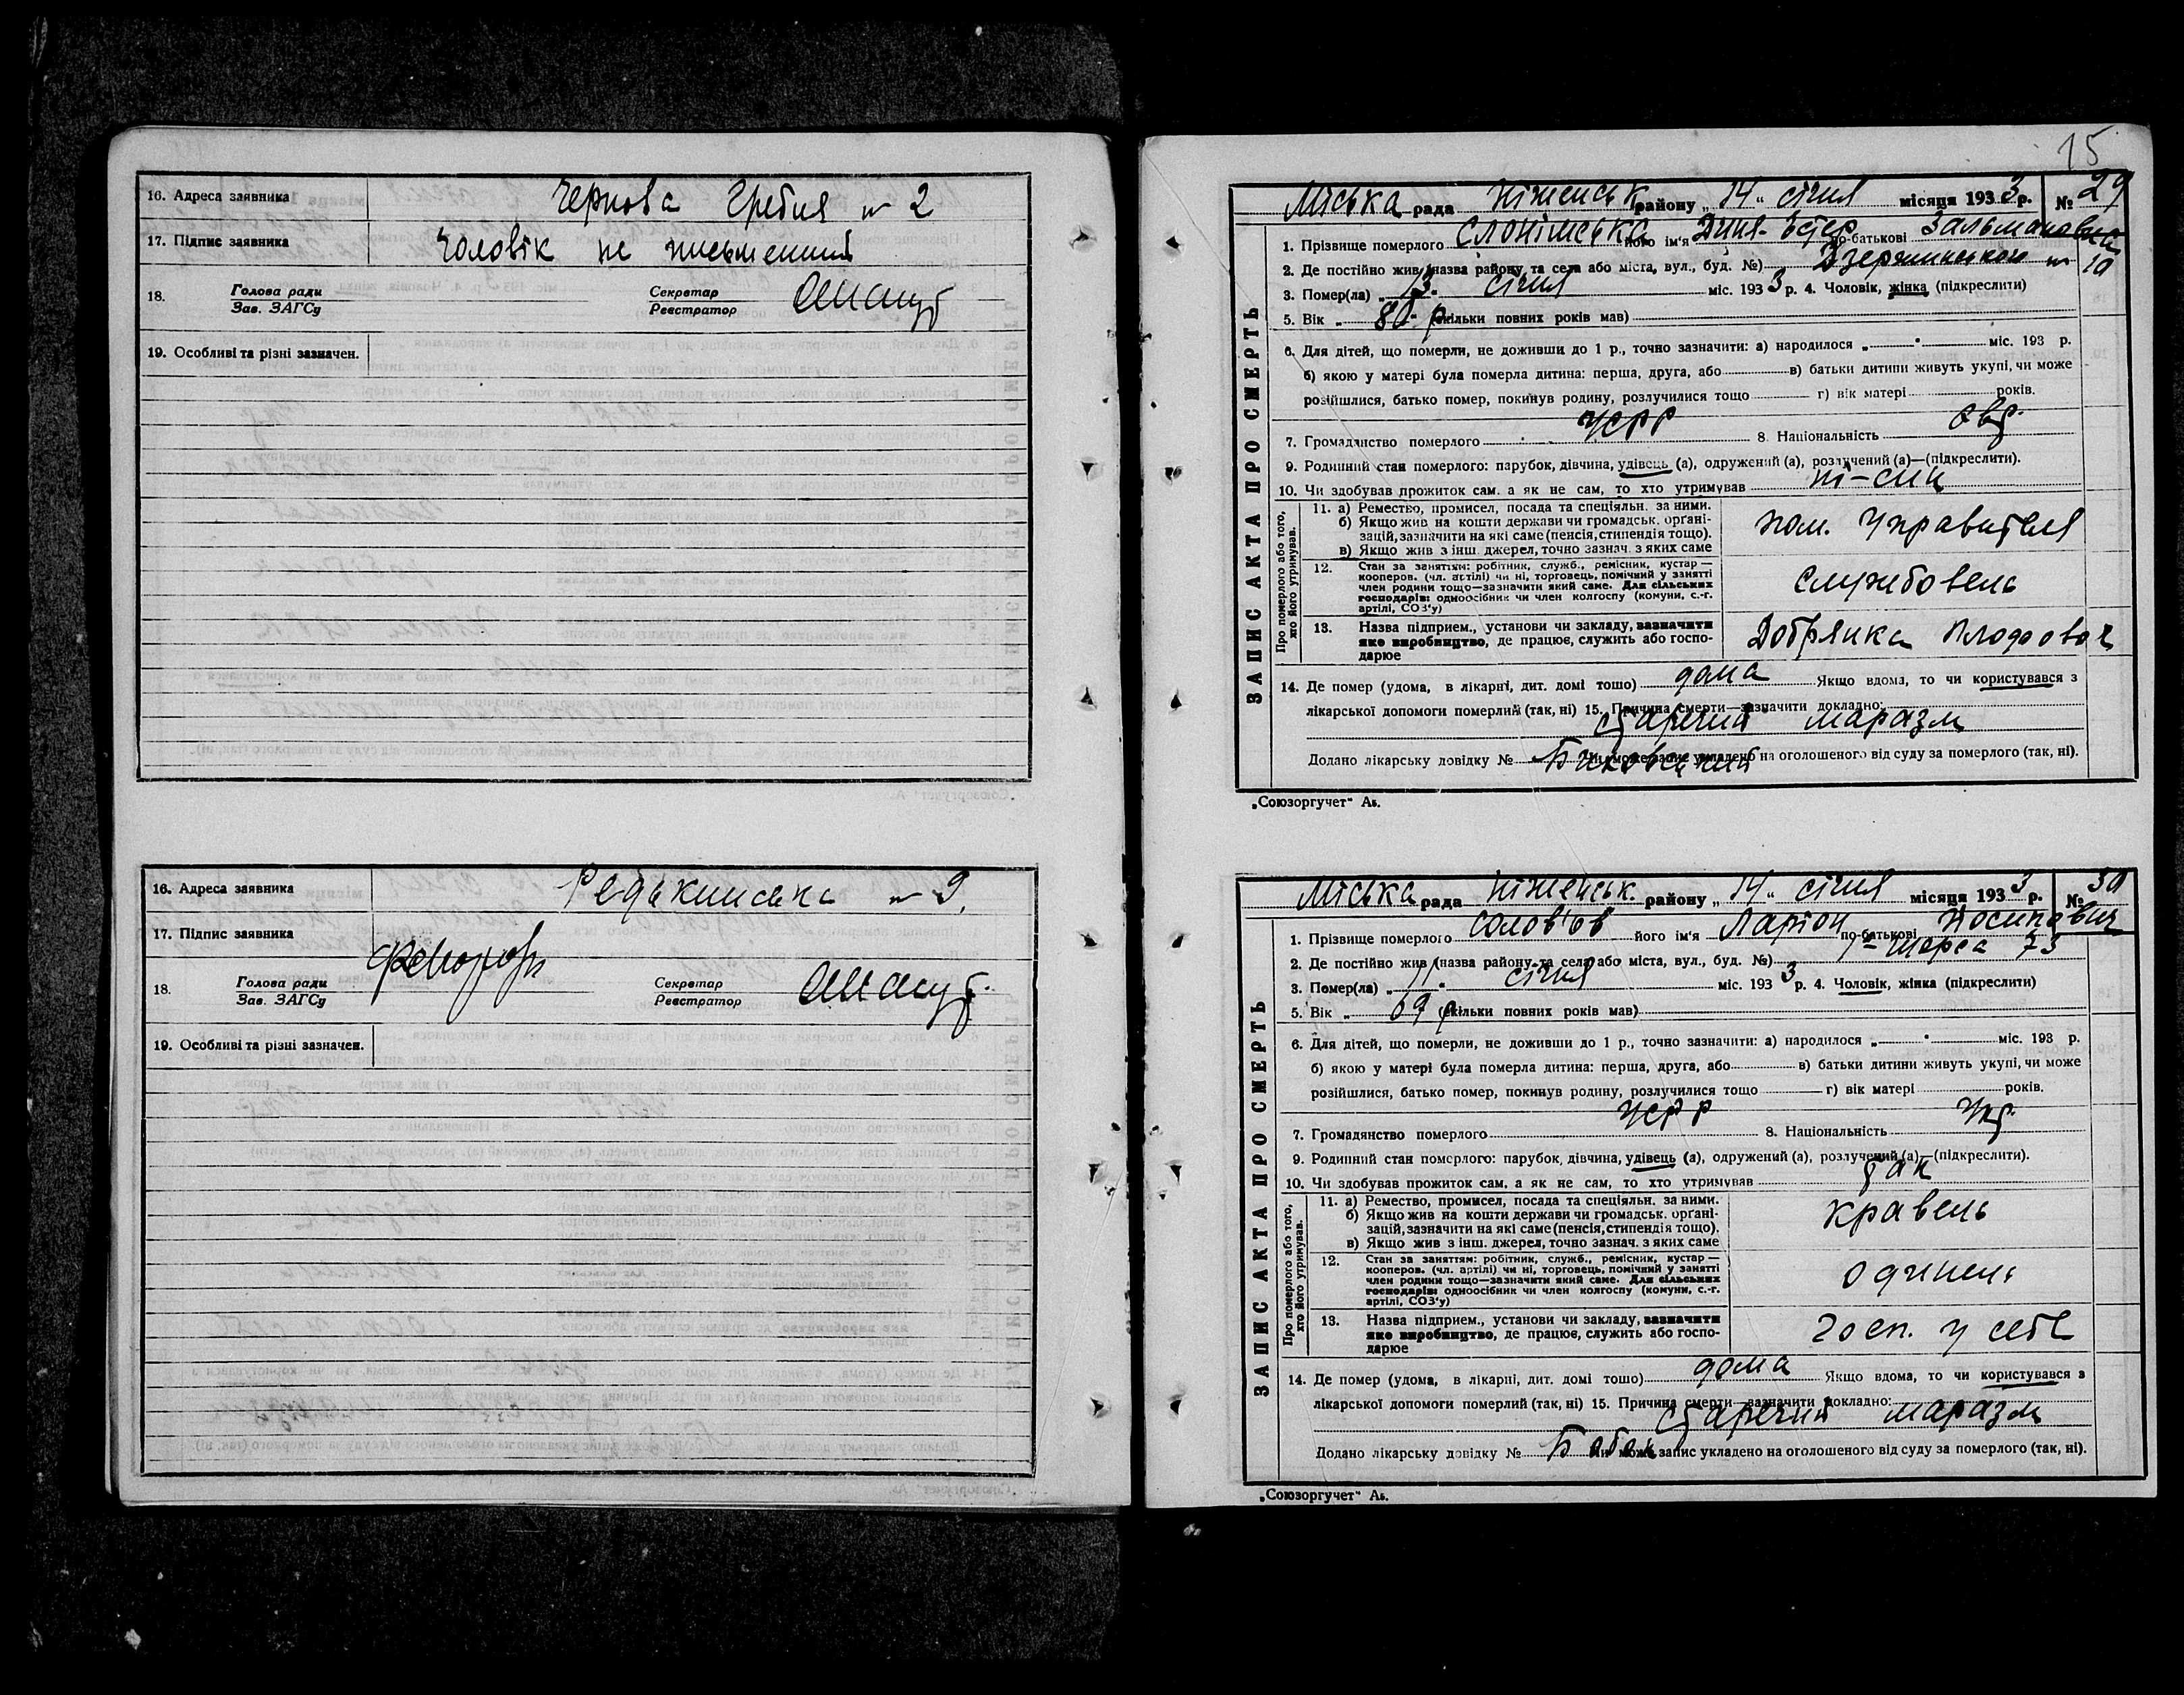 16. Адреса заявника Чернова Гребля № 2
17. Підпис заявника Чоловік не письменний
18. Голова ради Секретар
Зав. ЗАГСу Реєстратор
19. Особливі та різні зазначен.
„Союзоргучет“ Аь.
16. Адреса заявника Редькинська № 9.
17. Підпис заявника
18. Голова ради Секретар
Зав. ЗАГСу Реєстратор
19. Особливі та різні зазначен.
„Союзоргучет“ Аь.
15
ЗАПИС АКТА ПРО СМЕРТЬ
Міська рада Ніженськ. району „ 14 “ січня місяця 1933 р. № 29
1. Прізвище померлого Слонімська його ім'я Диня-Естер по-батькові Зальмановна
2. Де постійно жив (назва району та села або міста, вул., буд. №) Дзержинського № 10
3. Помер(ла) „ 13 “ січня міс. 1933 р. 4. Чоловік, жінка (підкреслити)
5. Вік „ 80 р. (скільки повних років мав)
6. Для дітей, що померли, не доживши до 1 р., точно зазначити: а) народилося „ “ міс. 193 р.
б) якою у матері була померла дитина: перша, друга, або в) батьки дитини живуть укупі, чи може
розійшлися, батько помер, покинув родину, розлучилися тощо г) вік матері років.
7. Громадянство померлого УСРР 8. Національність євр.
9. Родинний стан померлого: парубок, дівчина, удівець (а), одружений (а), розлучений (а)—(підкреслити).
10. Чи здобував прожиток сам, а як не сам, то хто утримував ні-син
Про померлого або того, хто його утримував.
11. а) Ремество, промисел, посада та спеціяльн. за ними.
б) Якщо жив на кошти держави чи громадськ. органі-
зацій, зазначити на які саме (пенсія, стипендія тощо).
в) Якщо жив з інш. джерел, точно зазнач. з яких саме
пом. управителя
12. Стан за заняттям: робітник, служб., ремісник, кустар —
кооперов. (чл. артілі) чи ні, торговець, помічний у занятті
член родини тощо—зазначити який саме. Для сільських
господарів: одноосібник чи член колгоспу (комуни, с.-г.
артілі, СОЗ'у)
службовець
13. Назва підприєм., установи чи закладу, зазначити
яке виробництво, де працює, служить або госпо-
дарює
Добрянка
14. Де помер (удома, в лікарні, дит. домі тошо) дома Якщо вдома, то чи користувався з
лікарської допомоги померлий (так, ні) 15. Причина смерти—зазначити докладно:
старечий маразм
Додано лікарську довідку № Чи може запис укладено на оголошеного від суду за померлого (так, ні).
„Союзоргучет“ Аь.
ЗАПИС АКТА ПРО СМЕРТЬ
Міська рада Ніженськ. району „ 14 “ січня місяця 1933 р. № 30
1. Прізвище померлого Солов'ов його ім'я Ларіон по-батькові Йосипович
2. Де постійно жив (назва району та села або міста, вул., буд. №) Щорса 73
3. Помер(ла) „ 11 “ січня міс. 1933 р. 4. Чоловік, жінка (підкреслити)
5. Вік „ 69 р. (скільки повних років мав)
6. Для дітей, що померли, не доживши до 1 р., точно зазначити: а) народилося „ “ міс. 193 р.
б) якою у матері була померла дитина: перша, друга, або в) батьки дитини живуть укупі, чи може
розійшлися, батько помер, покинув родину, розлучилися тощо г) вік матері років.
7. Громадянство померлого УСРР 8. Національність Укр.
9. Родинний стан померлого: парубок, дівчина, удівець (а), одружений (а), розлучений (а)—(підкреслити).
10. Чи здобував прожиток сам, а як не сам, то хто утримував так
Про померлого або того, хто його утримував.
11. а) Ремество, промисел, посада та спеціяльн. за ними.
б) Якщо жив на кошти держави чи громадськ. органі-
зацій, зазначити на які саме (пенсія, стипендія тощо).
в) Якщо жив з інш. джерел, точно зазнач. з яких саме
кравець
12. Стан за заняттям: робітник, служб., ремісник, кустар —
кооперов. (чл. артілі) чи ні, торговець, помічний у занятті
член родини тощо—зазначити який саме. Для сільських
господарів: одноосібник чи член колгоспу (комуни, с.-г.
артілі, СОЗ'у)
одинець
13. Назва підприєм., установи чи закладу, зазначити
яке виробництво, де працює, служить або госпо-
дарює
госп. у себе
14. Де помер (удома, в лікарні, дит. домі тошо) дома Якщо вдома, то чи користувався з
лікарської допомоги померлий (так, ні) 15. Причина смерти—зазначити докладно:
старечий маразм
Додано лікарську довідку № Чи може запис укладено на оголошеного від суду за померлого (так, ні).
„Союзоргучет“ Аь.